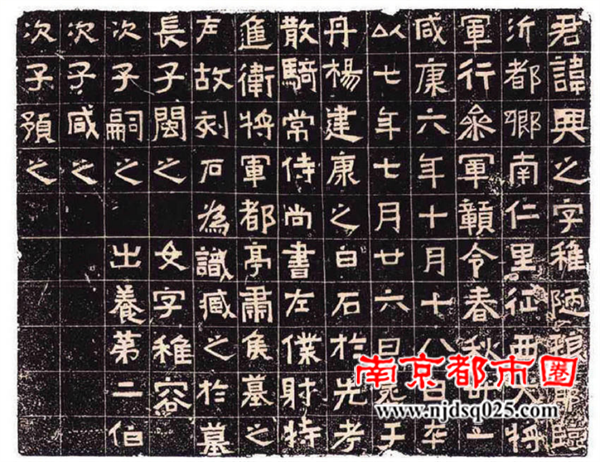 君諱興之字稚陋琅耶臨
沂都鄉南仁里征西大將
軍行參軍贛令春秋卅一
咸康六年十月十八日卒
以七年七月廿六日葬于
丹楊建康之白石於先考
散騎常侍尚書左僕射特
進衛將軍都亭肅侯墓之
左故刻石為識臧之於墓
長子閩之 女字稚容
次子嗣之 出養第二伯
次子咸之
次子預之
南京都市圈
www.njdsq025.com